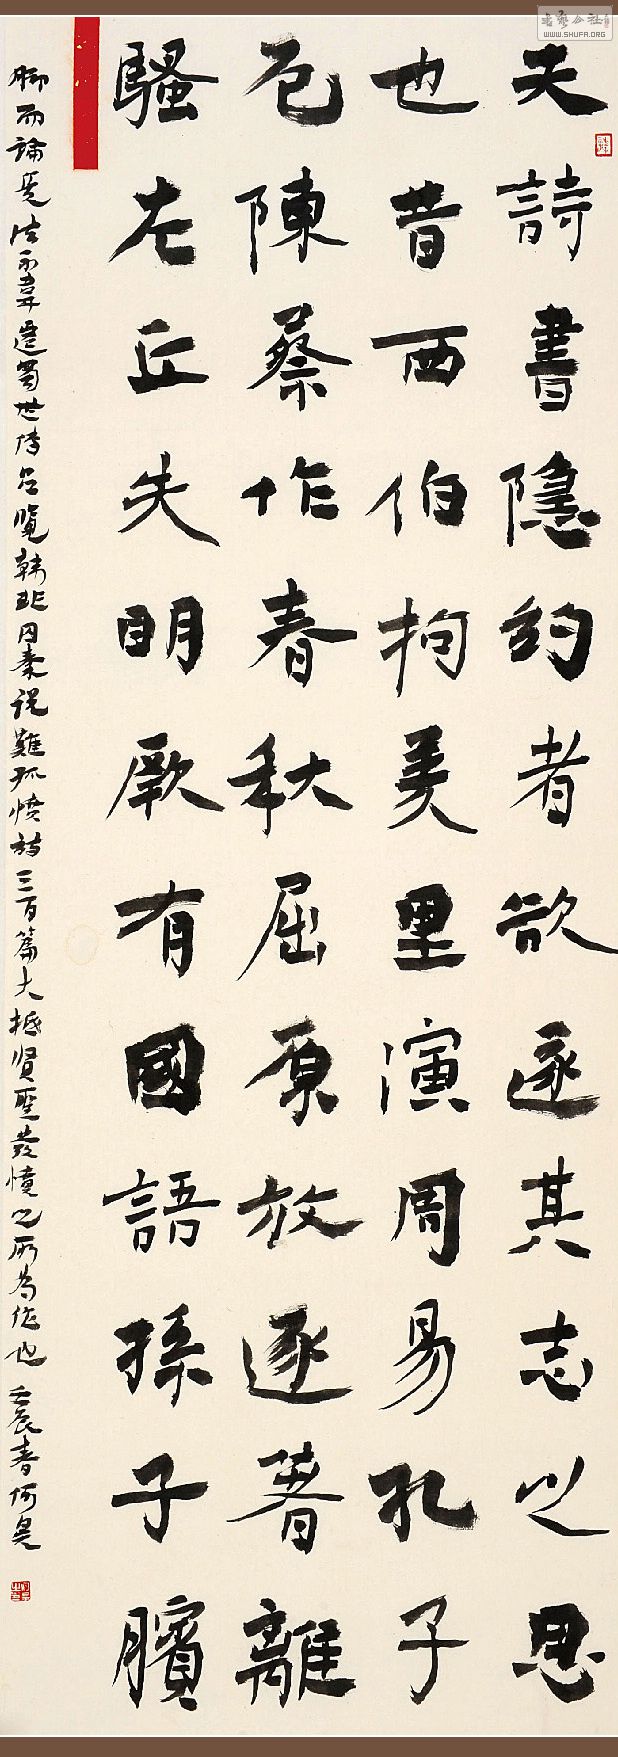 书艺公社
WWW.SHUFA.ORG
夫詩書隱約者欲遂其志之思
也昔西伯拘羑里演周易孔子
厄陳蔡作春秋屈原放逐著離
騷左丘失明厥有國語孫子臏
腳而論兵法不韋遷蜀世传吕覽韩非囚秦说難孤愤詩三百篇大抵贤聖發憤之所为作也 壬辰春何昊